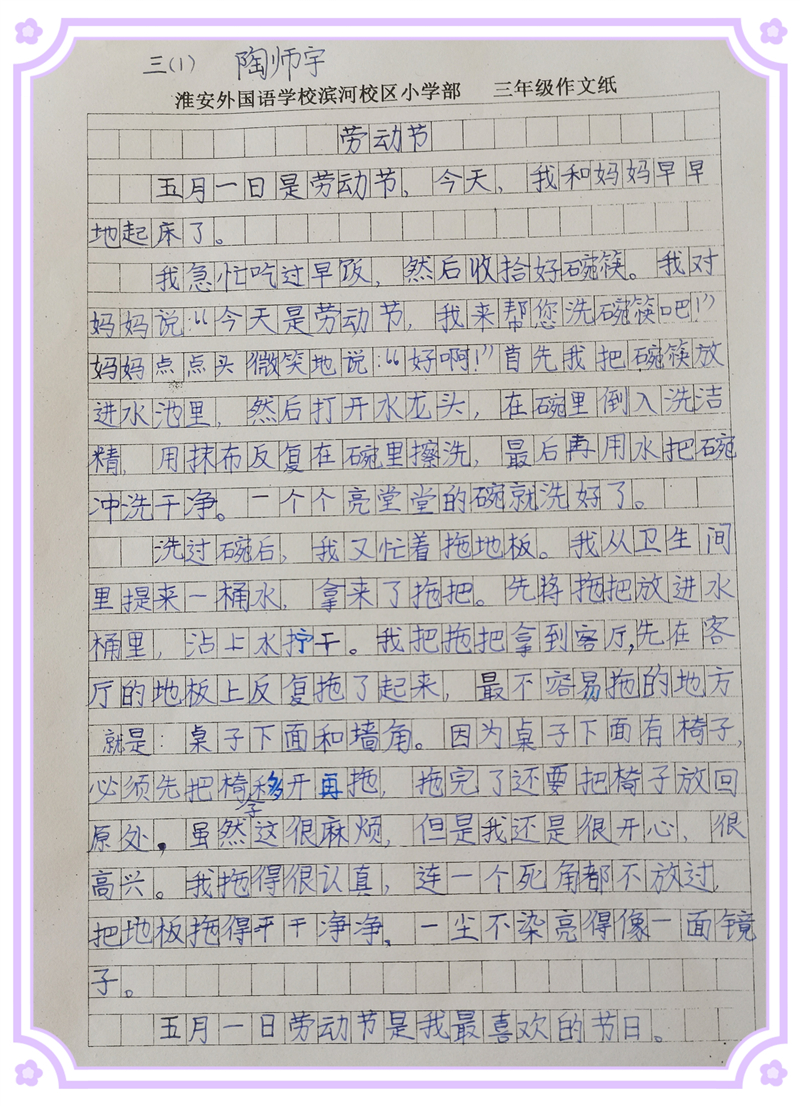 三(1) 陶师宇
淮安外国语学校滨河校区小学部 三年级作文纸
劳动节
五月一日是劳动节。今天、我和妈妈早早
地起床了。
我急忙吃过早饭，然后收拾好碗筷。我对
妈妈说：“今天是劳动节，我来帮您洗碗筷吧！”
妈妈点点头微笑地说：“好啊！”首先我把碗筷放
进水池里，然后打开水龙头，在碗里倒入洗洁
精，用抹布反复在碗里擦洗，最后再用水把碗
冲洗干净。一个个亮堂堂的碗就洗好了。
洗过碗后，我又忙着拖地板。我从卫生间
里提来一桶水，拿来了拖把。先将拖把放进水
桶里，沾上水拧干。我把拖把拿到客厅，先在客
厅的地板上反复拖了起来，最不容易拖的地方
就是：桌子下面和墙角。因为桌子下面有椅子，
必须先把椅子移开再拖，拖完了还要把椅子放回
原处。虽然这很麻烦，但是我还是很开心、很
高兴。我拖得很认真，连一个死角都不放过，
把地板拖得干干净净、一尘不染亮得像一面镜
子。
五月一日劳动节是我最喜欢的节日。